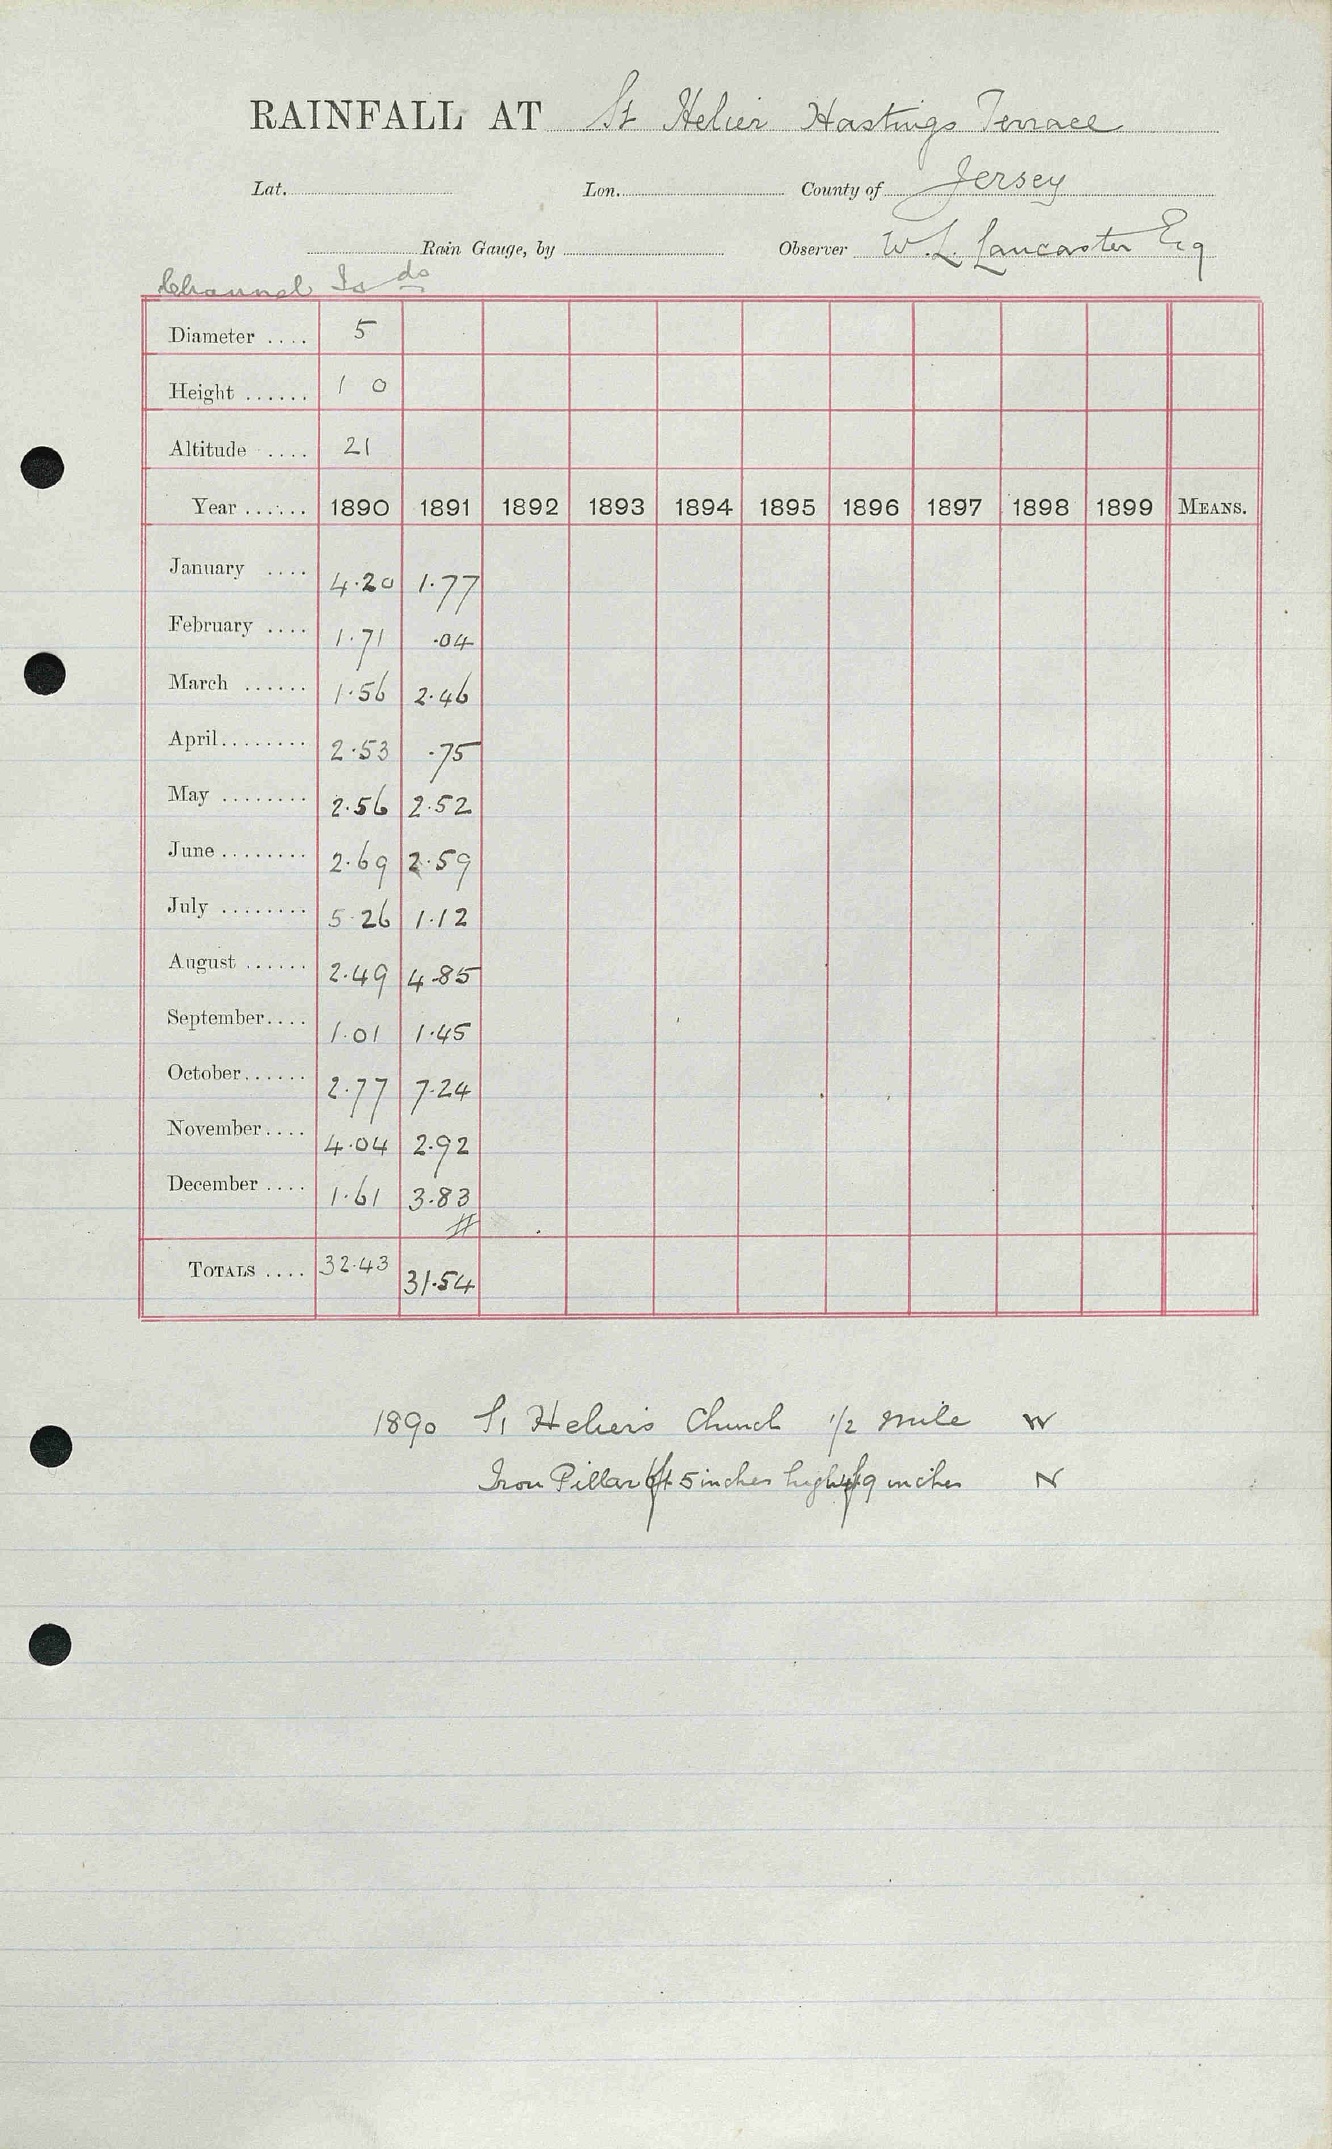 RAINFALL AT St Helier Hastings Terrace
Lat. Lon. County of Jersey
Rain Gauge, by Observer W. L. Lancaster Esq
Channel Is ds
Diameter .... 5
Height ...... 1 0
Altitude .... 21
Year ...... 1890 1891 1892 1893 1894 1895 1896 1897 1898 1899 MEANS.
January .... 4.20 1.77
February .... 1.71 .04
March ...... 1.56 2.46
April........ 2.53 .75
May ........ 2.56 2.52
June ........ 2.69 2.59
July ........ 5.26 1.12
August ...... 2.49 4.85
September.... 1.01 1.45
October...... 2.77 7.24
November.... 4.04 2.92
December .... 1.61 3.83
#
TOTALS .... 32.43 31.54
1890 St Helier's Church 1/2 mile W
Iron Pillar 6ft 5 inches high 4ft 9 inches N